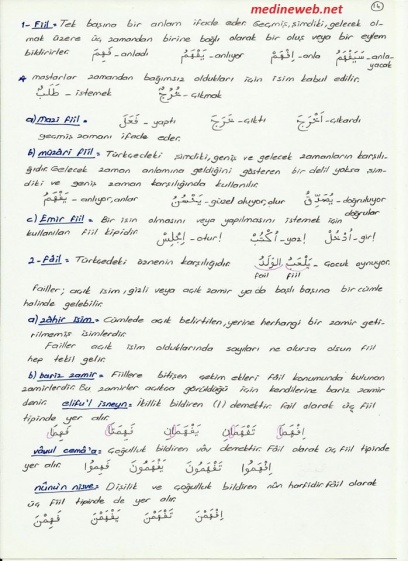 medineweb.net
14
1- Fiil = Tek başına bir anlam ifade eder. Geçmiş, şimdiki, gelecek ol-
mak üzere üç zamandan birine bağlı olarak bir oluş veya bir eylem
bildirirler. فَهِمَ - anladı يَفْهَمُ - anlıyor اِفْهَمْ - anla سَيَفْهَمُ - anla-
yacak
* mastarlar zamandan bağımsız oldukları için isim kabul edilir.
طَلَبٌ - istemek خُرُوجٌ - çıkmak
a) Mazi fiil = فَعَلَ - yaptı خَرَجَ - çıktı أَخْرَجَ - çıkardı
geçmiş zamanı ifade eder.
b) müzari fiil = Türkçedeki şimdiki, geniş ve gelecek zamanların karşılı-
ğıdır. Gelecek zaman anlamına geldiğini gösteren bir delil yoksa şim-
diki ve geniş zaman karşılığında kullanılır.
يَفْهَمُ - anlıyor, anlar يَحْسُنُ - güzel oluyor, olur يُصَدِّقُ - doğruluyor
doğrular
c) Emir fiil = Bir işin olmasını veya yapılmasını istemek için
kullanılan fiil kipidir. اِجْلِسْ - otur! اُكْتُبْ - yaz! اُدْخُلْ - gir!
2- Fâil = Türkçedeki öznenin karşılığıdır. يَلْعَبُ الْوَلَدُ - Çocuk oynuyor.
fail fiil
Failler; açık isim, gizli veya açık zamir ya da başlı başına bir cümle
halinde gelebilir.
a) zâhir isim = Cümlede açık belirtilen, yerine herhangi bir zamir geti-
rilmemiş isimlerdir.
Failler açık isim olduklarında sayıları ne olursa olsun fiil
hep tekil gelir.
b) bariz zamir = Fiillere bitişen çekim ekleri fâil konumunda bulunan
zamirlerdir. Bu zamirler açıkça görüldüğü için kendilerine bariz zamir
denir. elifu'l isneyn = İkillik bildiren (ا) demektir. Fail olarak üç fiil
tipinde yer alır.
فَهِمَا فَهِمَتَا يَفْهَمَانِ تَفْهَمَانِ اِفْهَمَا
vâvul cemâ'a = Çoğulluk bildiren vâv demektir. Fâil olarak üç fiil tipinde
yer alır. فَهِمُوا يَفْهَمُونَ تَفْهَمُونَ اِفْهَمُوا
nûnu'n nisve = Dişilik ve çoğulluk bildiren nûn harfidir. Fâil olarak
üç fiil tipinde de yer alır.
فَهِمْنَ يَفْهَمْنَ تَفْهَمْنَ اِفْهَمْنَ